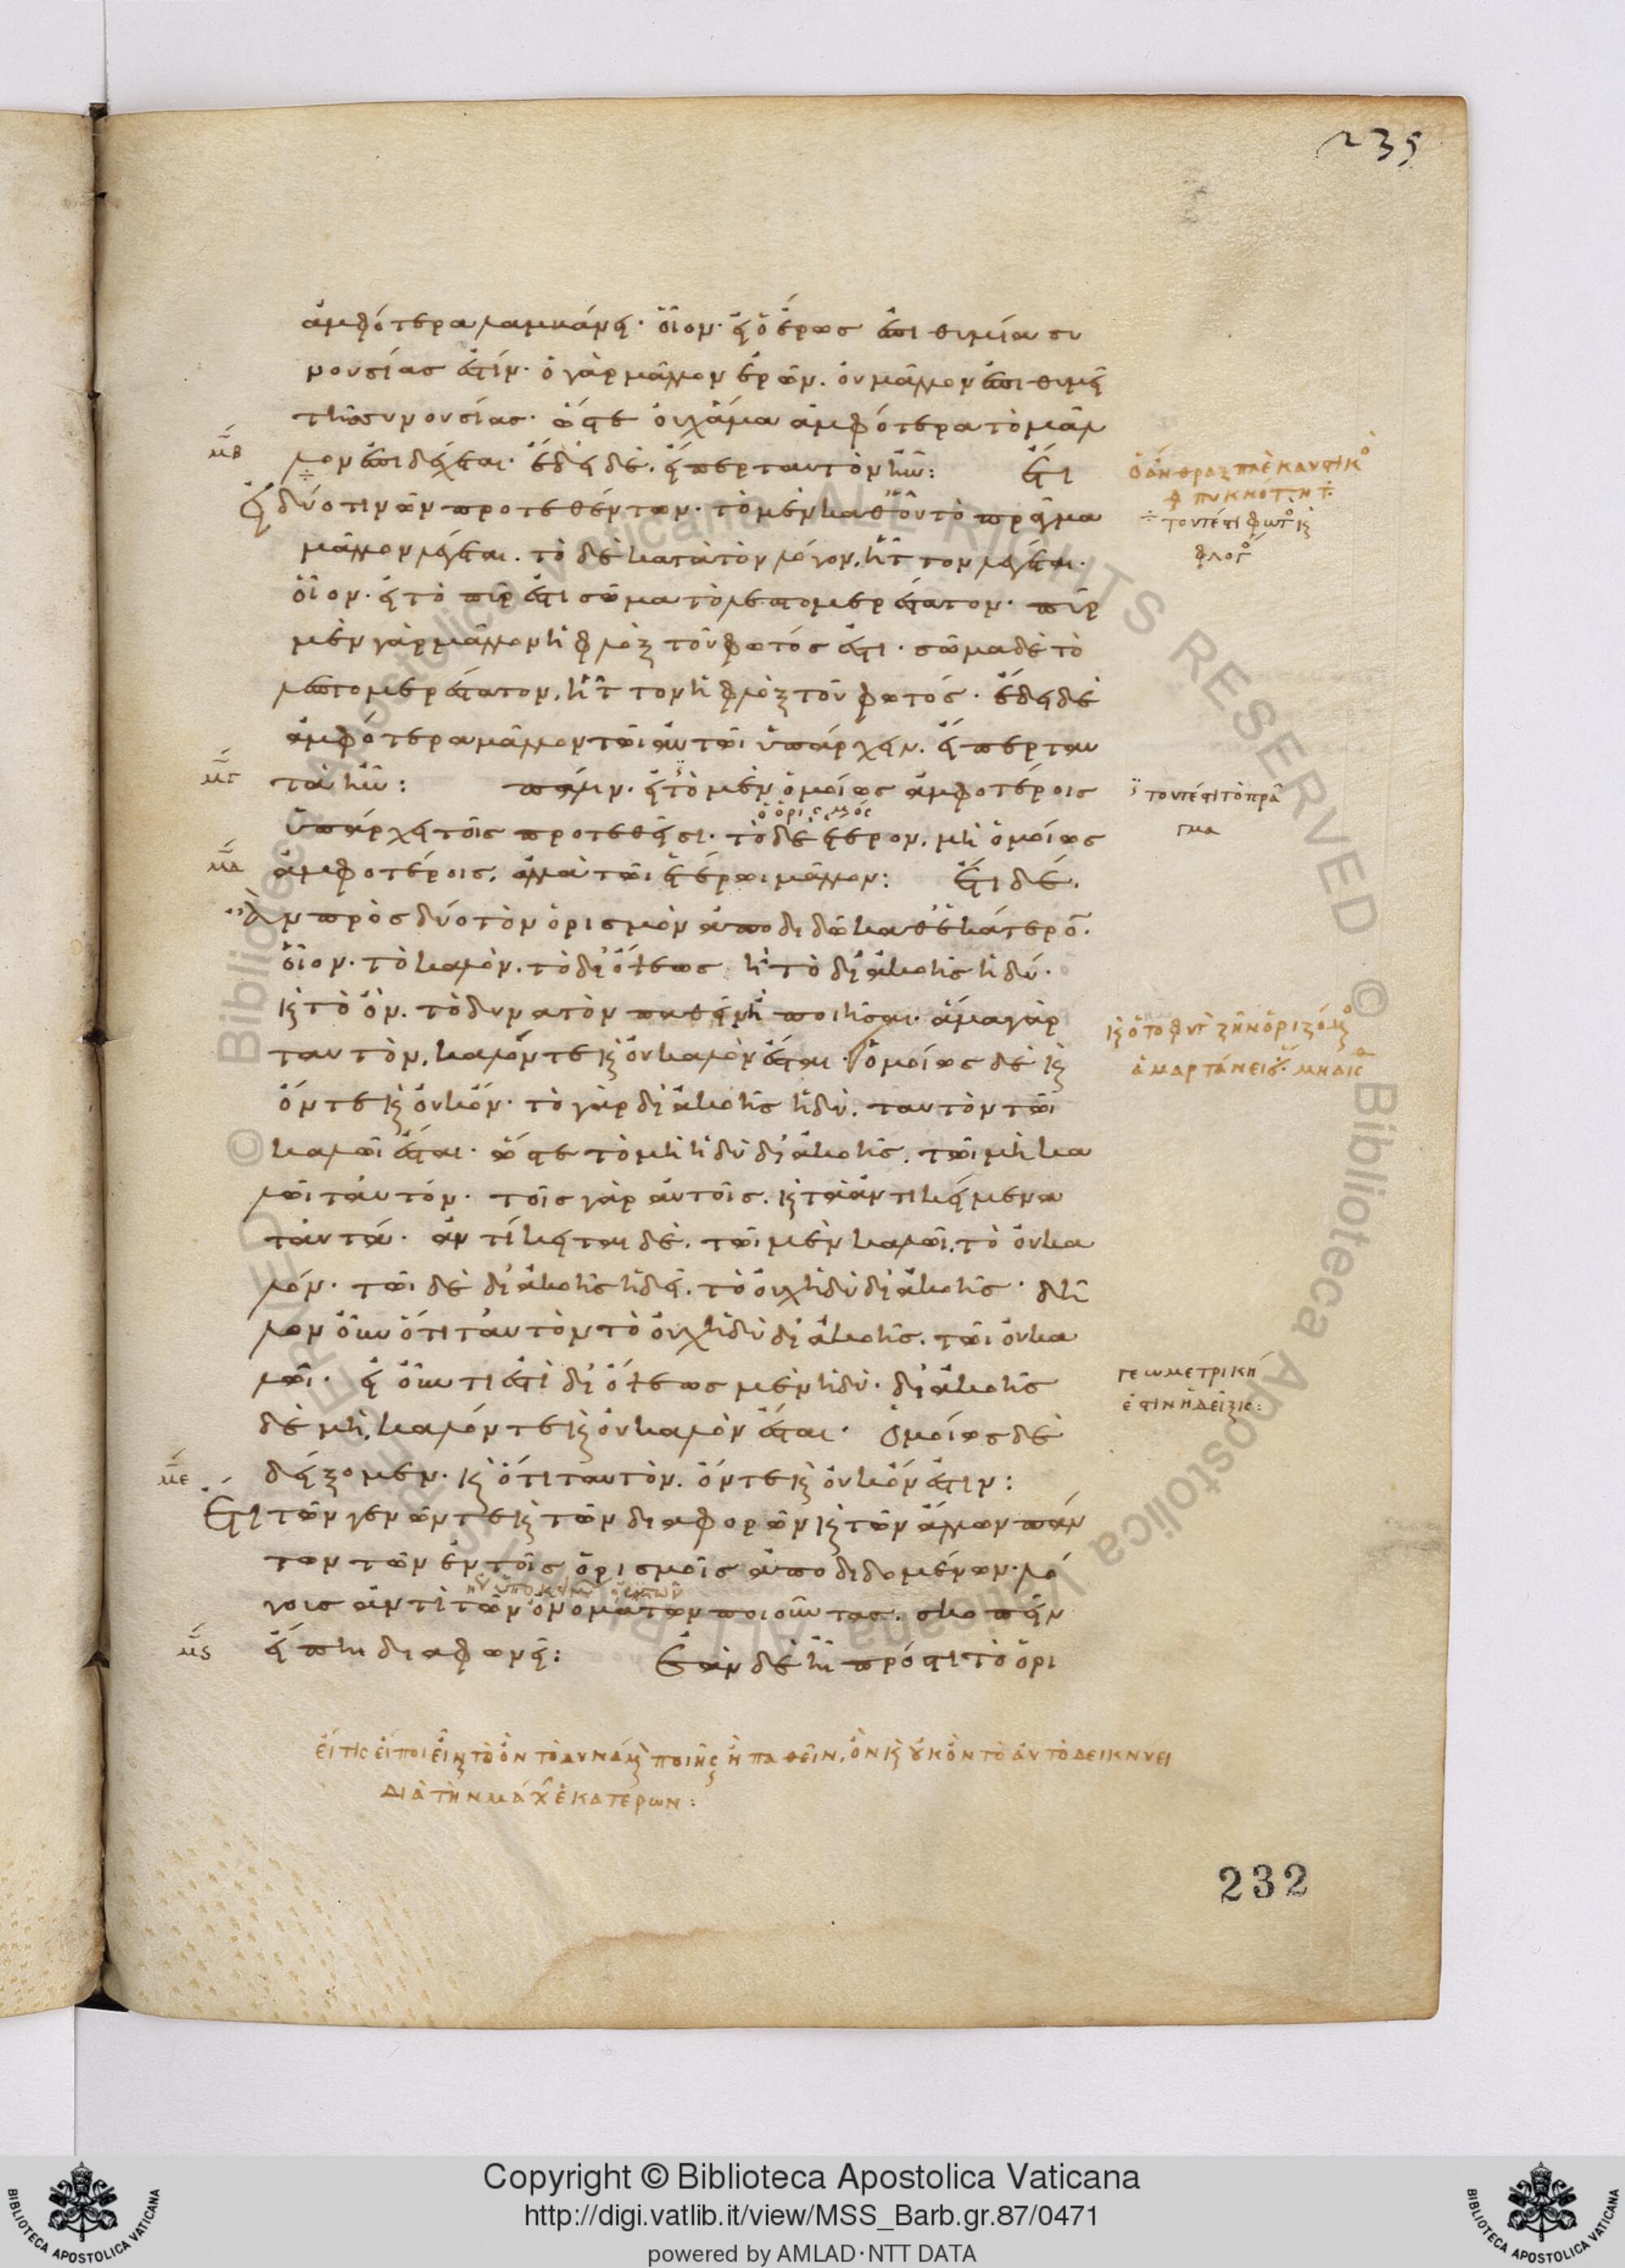 235
ἀμφότερα λαμβάνει· οἷον· εἰ ὁ ἔρως ἐπιθυμία συ
νουσίας ἐστίν· ὁ γὰρ μᾶλλον ἐρῶν. οὐ μᾶλλον ἐπιθυμεῖ
τῆς συνουσίας· ὥστε οὐχ ἅμα ἀμφότερα τὸ μᾶλ
μβ
λον ἐπιδέχεται· ἔδει δέ. εἴπερ ταυτὸν ἦν: ἔτι
εἰ δύο τινῶν προτεθέντων· τὸ μὲν καθ' οὗ τὸ πρᾶγμα
μᾶλλον λέγεται. τὸ δὲ κατὰ τὸν λόγον, ἧττον λέγεται·
οἷον· εἰ τὸ πῦρ ἐστι σῶμα τὸ λεπτομερέστατον· πῦρ
μὲν γὰρ μᾶλλον ἡ φλόξ τοῦ φωτός ἐστι· σῶμα δὲ τὸ
λεπτομερέστατον, ἧττον ἡ φλὸξ τοῦ φωτός· ἔδει δὲ
ἀμφότερα μᾶλλον τῶι αὐτῶι ὑπάρχειν. εἴπερ ταυ
μγ
τὰ ἦν: πάλιν· εἰ τὸ μὲν ὁμοίως ἀμφοτέροις
ὁ ὁρισμός
ὑπάρχει τοῖς προτεθεῖσι· τὸ δὲ ἕτερον, μὴ ὁμοίως
μδ
ἀμφοτέροις, ἀλλὰ τῶι ἑτέρωι μᾶλλον: ἔτι δέ.
Ἂν πρὸς δύο τὸν ὁρισμὸν ἀποδιδῶ καθ' ἑκάτερον.
οἷον· τὸ καλὸν. τὸ δι' ὄψεως ἢ τὸ δι' ἀκοῆς ἡδύ·
κ(αὶ) τὸ ὄν. τὸ δυνατὸν παθεῖν ἢ ποιῆσαι· ἅμα γὰρ
ταυτὸν, καλόν τε κ(αὶ) οὐ καλὸν ἔσται· ὁμοίως δὲ κ(αὶ)
ὄν τε κ(αὶ) οὐκ ὄν· τὸ γὰρ δι' ἀκοῆς ἡδύ. ταυτὸν τῶι
καλῶι ἔσται· ὥστε τὸ μὴ ἡδὺ δι' ἀκοῆς. τῶι μὴ κα
λῶι ταυτόν· τοῖς γὰρ αὐτοῖς. κ(αὶ) τὰ ἀντικείμενα
ταυτά· ἀντίκειται δὲ. τῶι μὲν καλῶι. τὸ οὐ κα
λόν· τῶι δὲ δι' ἀκοῆς ἡδεῖ. τὸ οὐχ ἡδὺ δι' ἀκοῆς· δῆ
λον οὖν ὅτι ταυτὸν τὸ οὐχ ἡδὺ δι' ἀκοῆς. τῶι οὐ κα
λῶι· εἰ οὖν τι ἐστὶ δι' ὄψεως μὲν ἡδύ· δι' ἀκοῆς
δὲ μή, καλόν τε κ(αὶ) οὐ καλὸν ἔσται· Ὁμοίως δὲ
με
δείξομεν· κ(αὶ) ὅτι ταυτὸν. ὄν τε κ(αὶ) οὐκ ὄν ἐστιν:
Ἔτι τῶν γενῶν τε κ(αὶ) τῶν διαφορῶν κ(αὶ) τῶν ἄλλων πάν
των τῶν ἐν τοῖς ὁρισμοῖς ἀποδιδομένων· λό
γους ἀντὶ τῶν ὀνομάτων ποιοῦντας. σκοπεῖν
μς
εἴ πη διαφωνεῖ: Ἐὰν δὲ ἦ πρός τι τὸ ὁρι
τουτέστι φωτὸς κ(αὶ)
φλογός
τουτέστι τὸ πρᾶ
γμα
γεωμετρικὴ
ἐστὶν ἡ δεῖξις:
εἴ τις εἴποι εἶναι τὸ ὂν τὸ δυνάμενον ποιῆσαι ἢ παθεῖν, ὂν κ(αὶ) οὐκ ὂν τὸ αὐτὸ δεικνύει
διὰ τὴν μάχην ἑκατέρων:
232
Copyright © Biblioteca Apostolica Vaticana
http://digi.vatlib.it/view/MSS_Barb.gr.87/0471
powered by AMLAD·NTT DATA